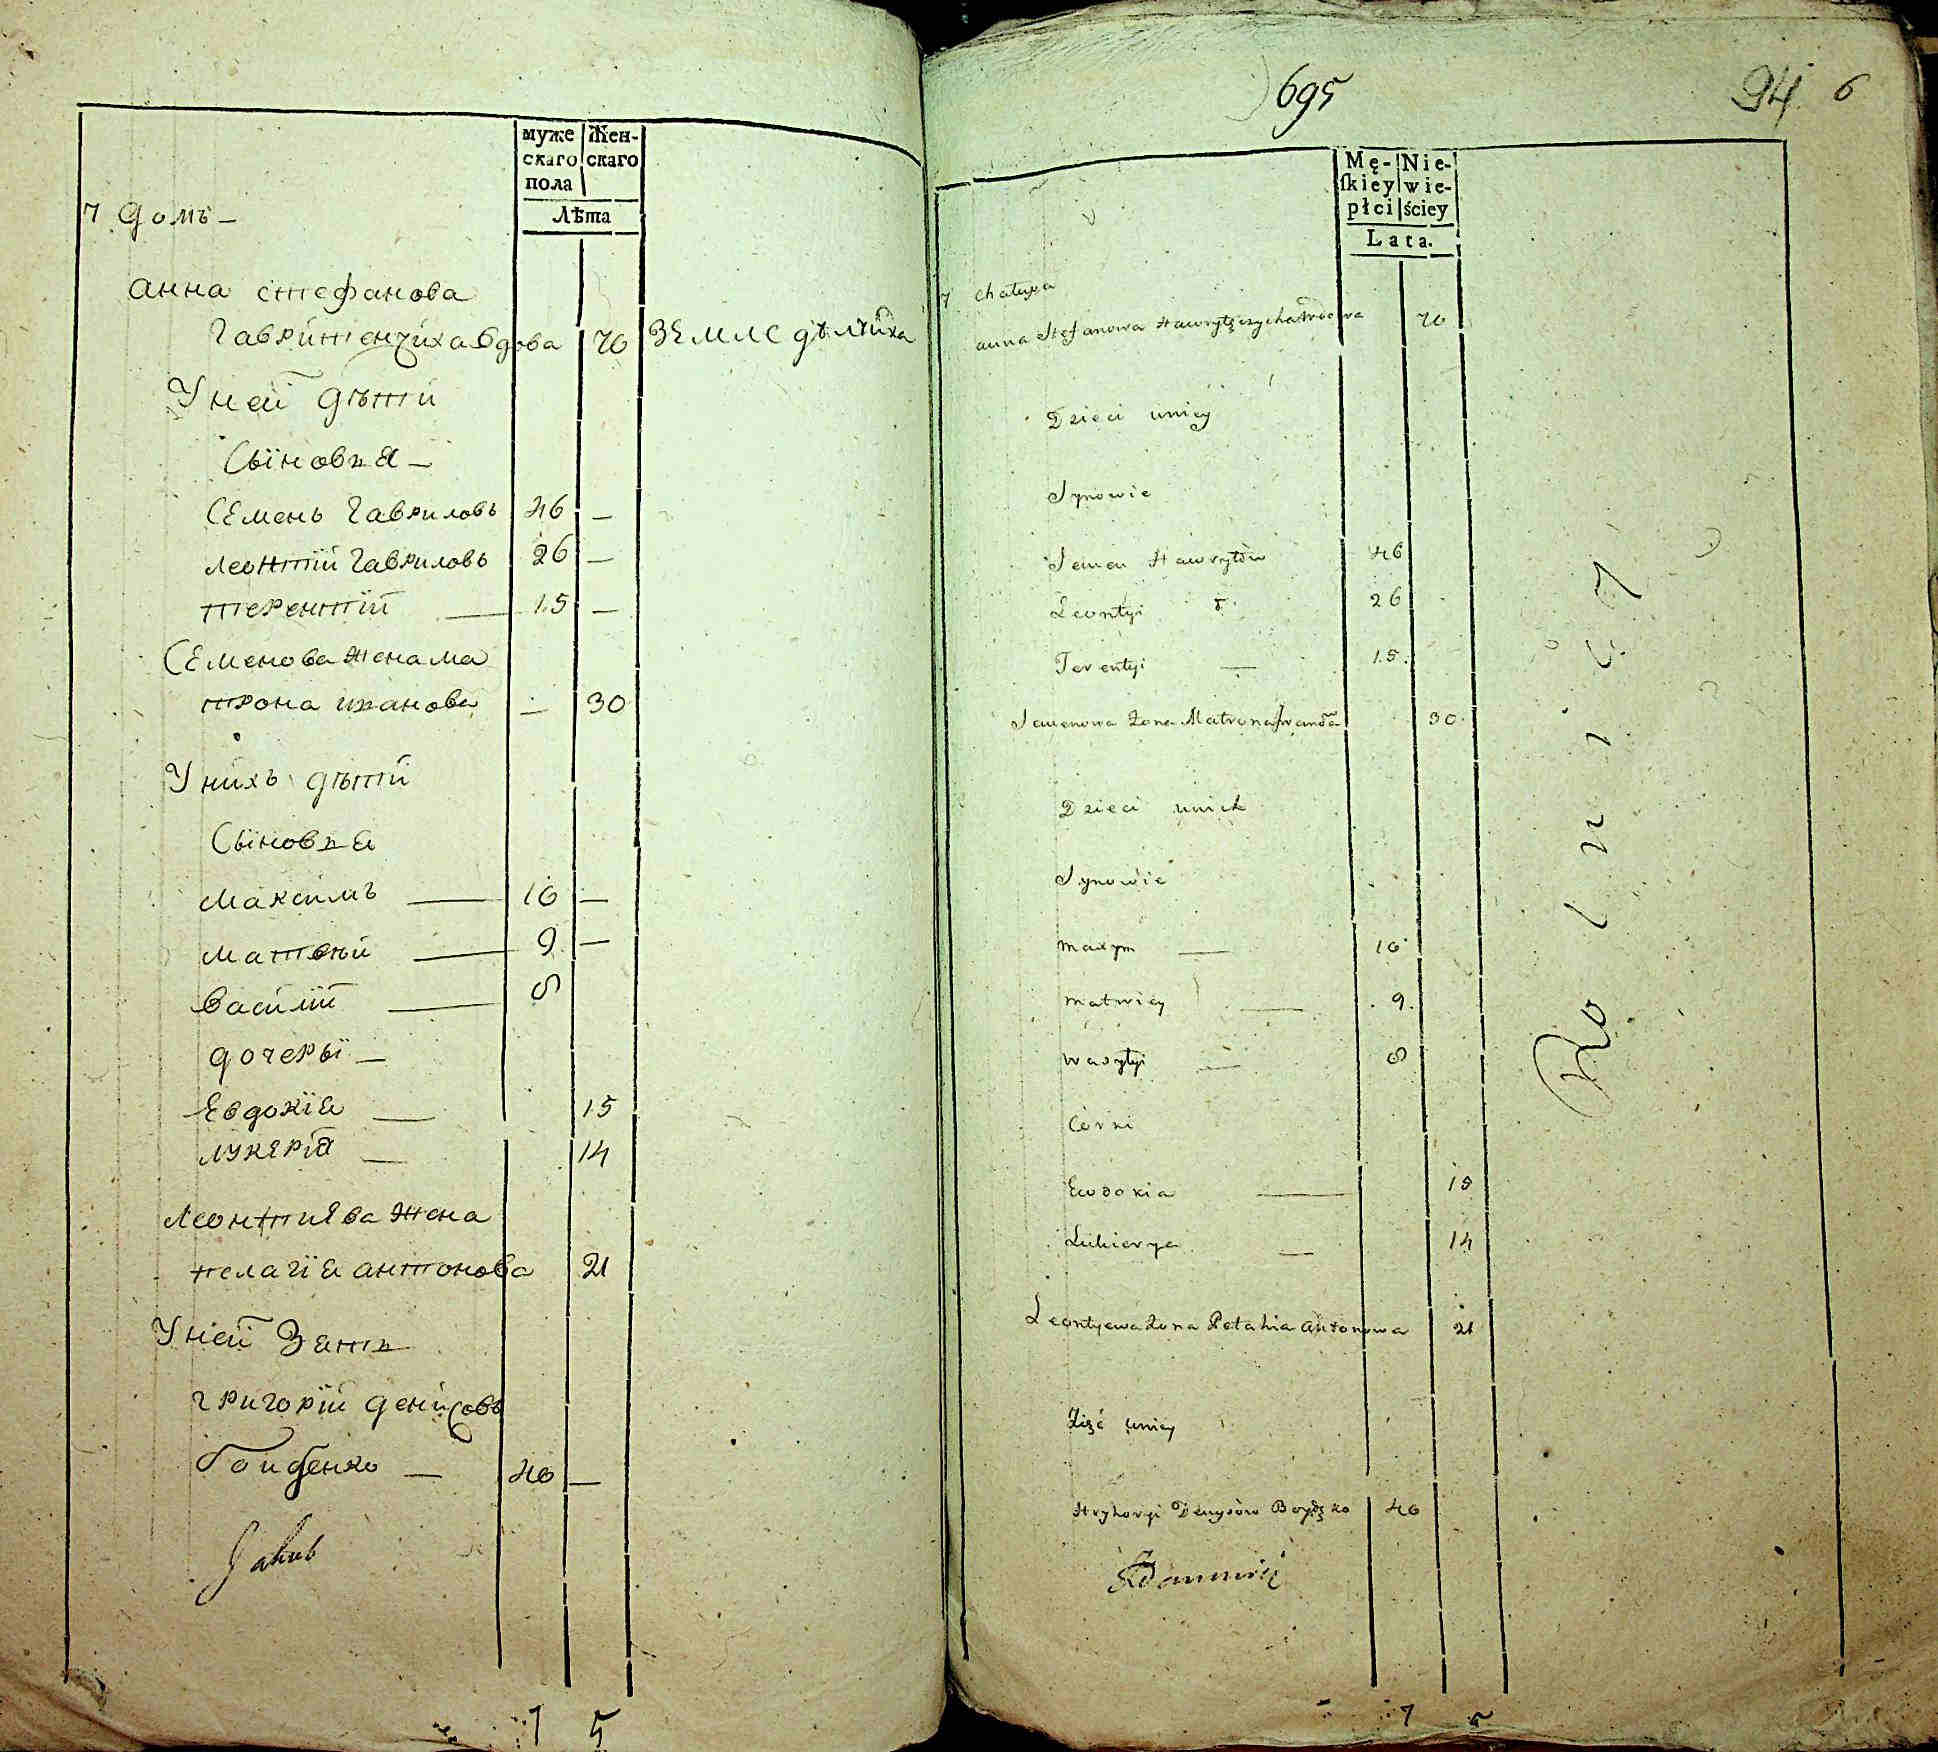 муже
скаго
пола
Жен-
скаго
Лѣта
7 Домъ —
анна стефанова
Гаврилѣнчиха вдова 70 ЗЕМЛЕ дѣлчиха
У ней дѣти
Сыновья —
СЕмень Гавриловъ 46 —
леонтій Гавриловъ 26 —
терентій — 15 —
СЕменова жена ма
трона иванова — 30
У нихъ дѣти
Сыновья
Максимъ — 10 —
Матвѣй — 9 —
Василій — 8
дочеры —
Евдокія — 15
лукЕрія — 14
леонтиЕва жена
пелагія антонова 21
У ней Зять
григорій денисовъ
Боиденко — 40 —
Jakub
7 5
695
94 6
Mę-
skiey
płci
Nie-
wie-
ściey
Lata.
7 Chałupa
anna Stefanowa Hawryłęczycha Wdowa 70
Dzieci uniey
Synowie
Semen Hawryłów 46
Leontyi T. 26
Terentyi — 15.
Semenowa Żona Matrona Iwanoa 30
Dzieci unich
Synowie
Maxym — 10
Matwiey — 9.
Wasyłyi — 8
Córki
Ewdokia — 15
Łukierya — 14
Leontyewa Żona Pełahia Antonowa 21
Zięć uniey
Hryhoryi Denysów Boydęko 40
Adamowicz
Rolnicy
7 5